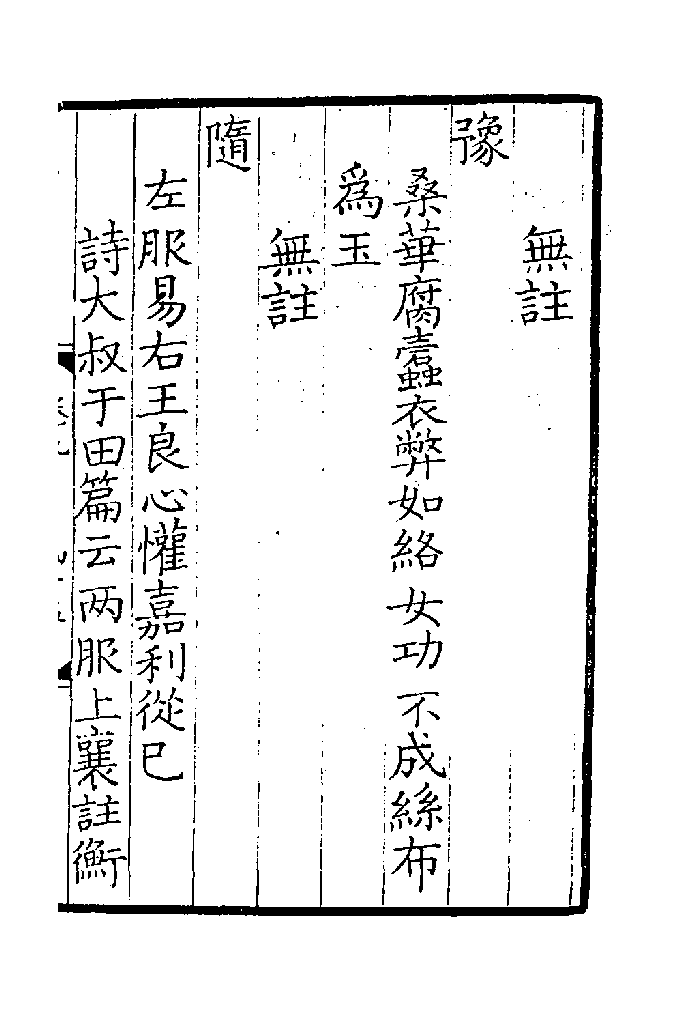 無註
豫
桑華腐蠹衣弊如絡女功不成絲布
爲玉
無註
隨
左服易右王良心懽嘉利從己
詩大叔于田篇云两服上襄註衡